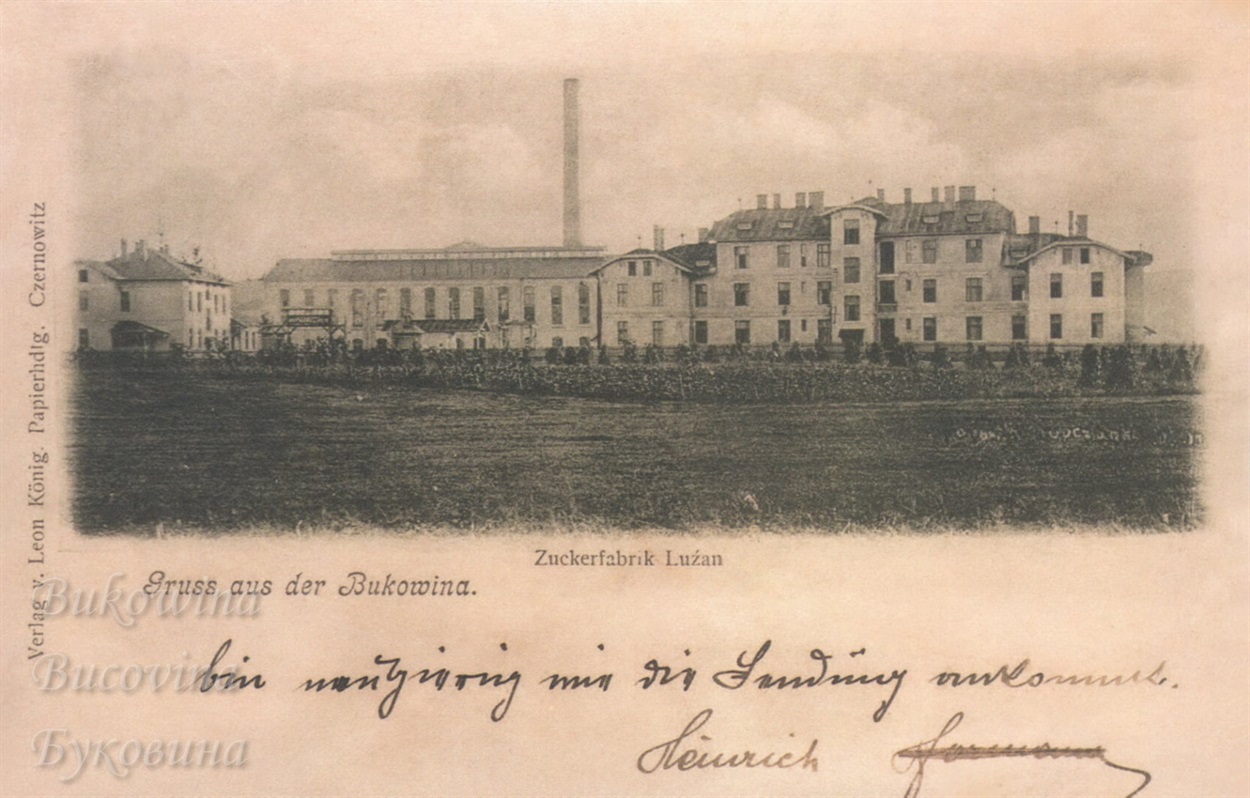 Verlag v. Leon König. Papierhdlg. Czernowitz
Zuckerfabrik Lużan
Gruss aus der Bukowina.
Bukowina
Bucovina
Буковина
bin neugierig wie die Sendung ankommt.
Heinrich